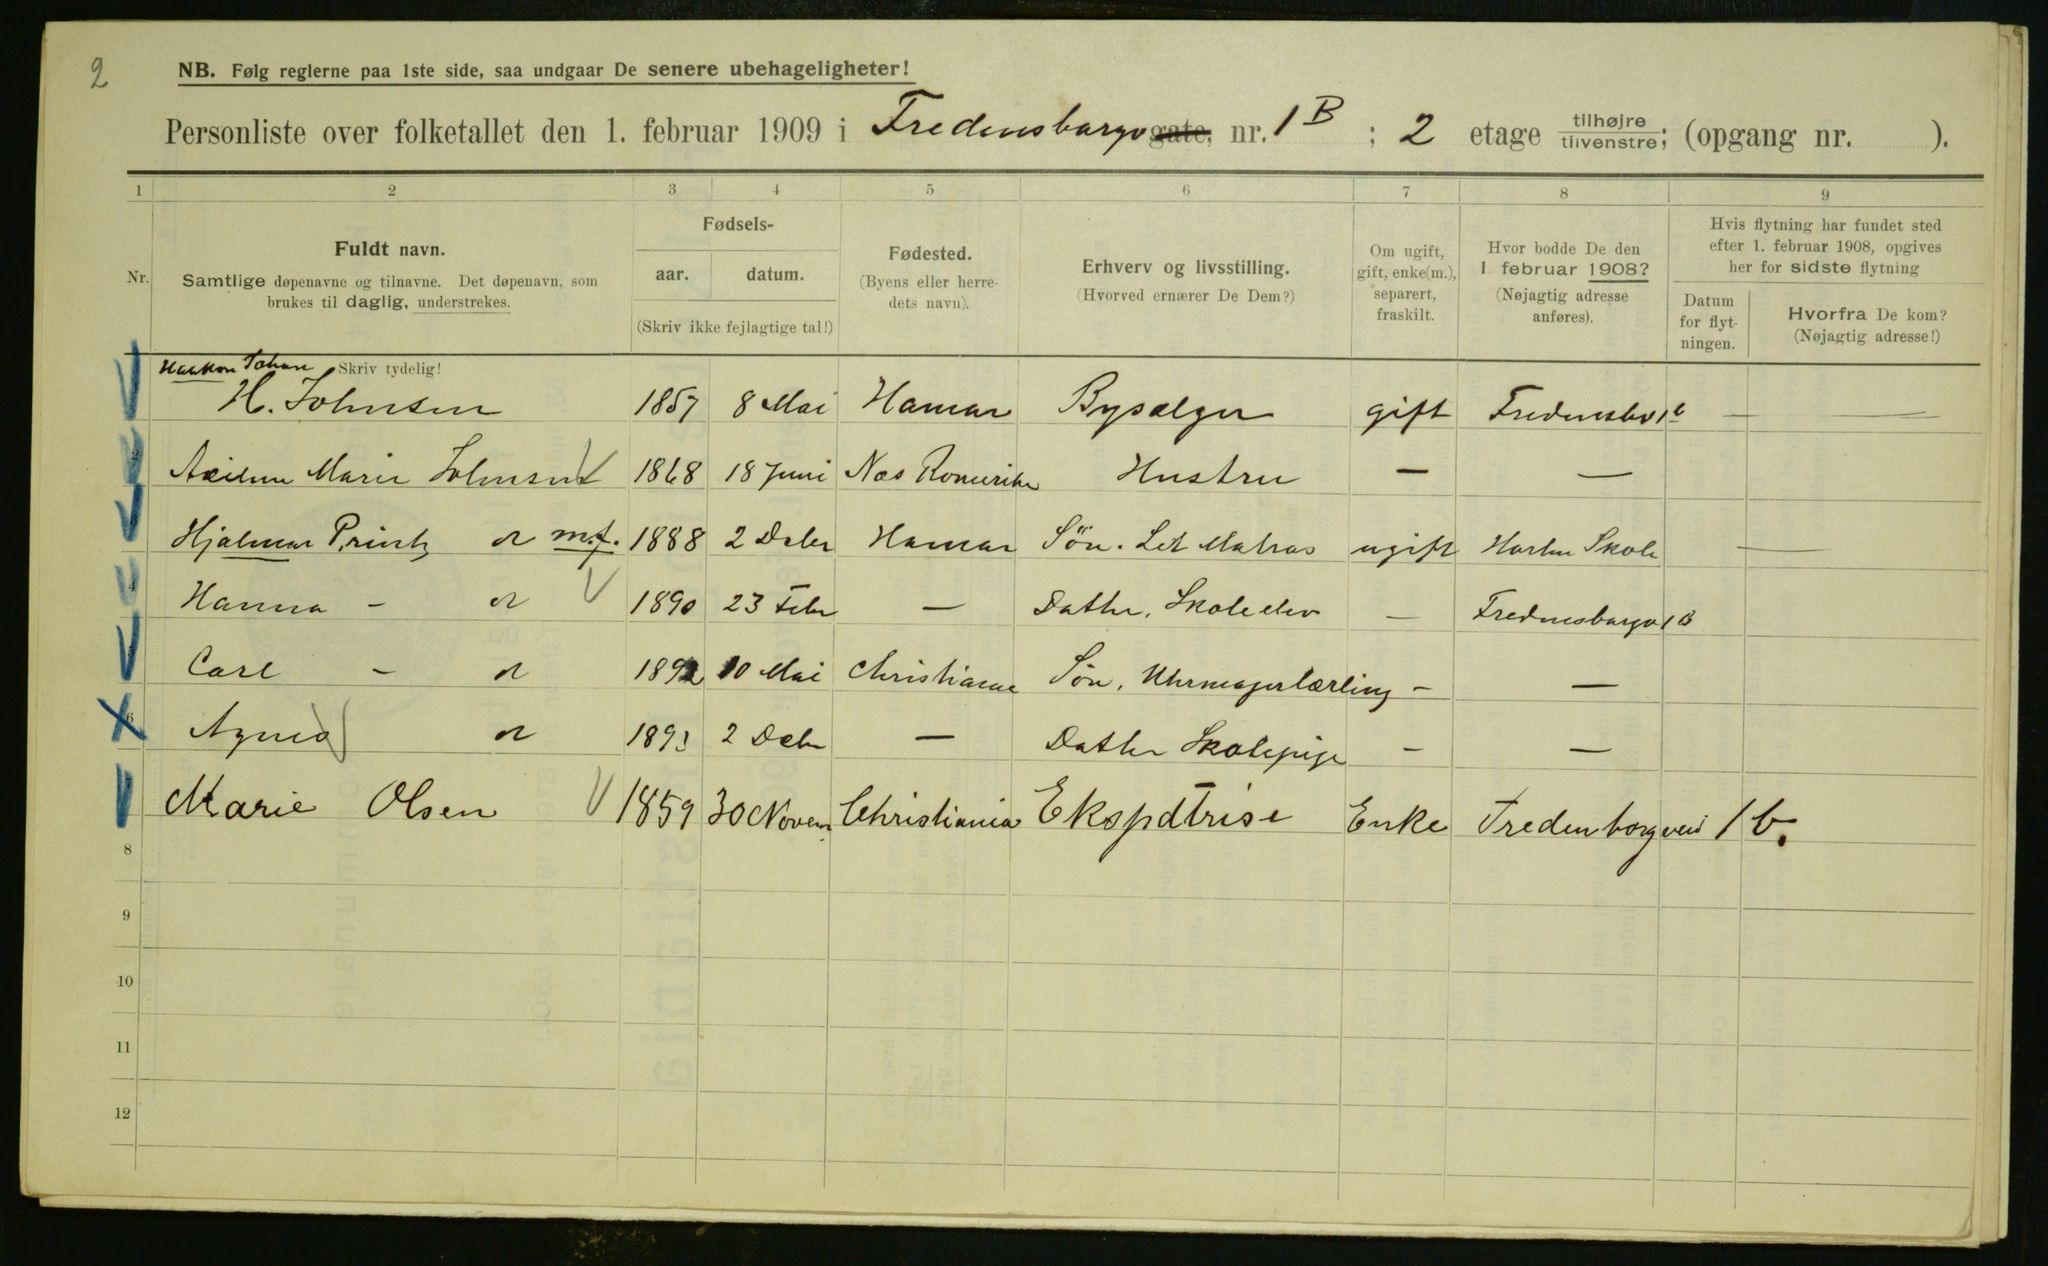 2
NB. Følg reglerne paa 1ste side, saa undgaar De senere ubehageligheter!
Personliste over folketallet den 1. februar 1909 i Fredensborgv gate, nr. 1B ; 2 etage tilhøjre tilvenstre; (opgang nr. ).
1 2 3 4 5 6 7 8 9
Nr.
Fuldt navn.
Samtlige døpenavne og tilnavne. Det døpenavn, som
brukes til daglig, understrekes.
Fødsels-
aar. datum.
(Skriv ikke fejlagtige tal!)
Fødested.
(Byens eller herre-
dets navn).
Erhverv og livsstilling.
(Hvorved ernærer De Dem?)
Om ugift,
gift, enke(m.),
separert,
fraskilt.
Hvor bodde De den
1 februar 1908?
(Nøjagtig adresse
anføres).
Hvis flytning har fundet sted
efter 1. februar 1908, opgives
her for sidste flytning
Datum
for flyt-
ningen.
Hvorfra De kom?
(Nøjagtig adresse!)
Haakon Johan Skriv tydelig!
H. Johnsen 1857 8 Mai Hamar Bysælger gift Fredensbv 1b — —
Marie Johnsen 1868 18 Juni Næs Romerike Hustru — —
Hjalmar Printz do m.f. 1888 2 Debr Hamar Søn. Let Matros ugift Horten Skole —
4 Hanna - do 1890 23 Febr — Datter. Skoleelev — Fredensborgv 1B
5 Carl - do 1892 10 Mai Christiania Søn. Uhrmagerlærling - —
6 Agnes do 1893 2 Debr — Datter Skolepige - —
Marie Olsen 1859 30 Novem Christiania Ekspdtrise Enke Fredenborgveii 1b.
8
9
10
11
12